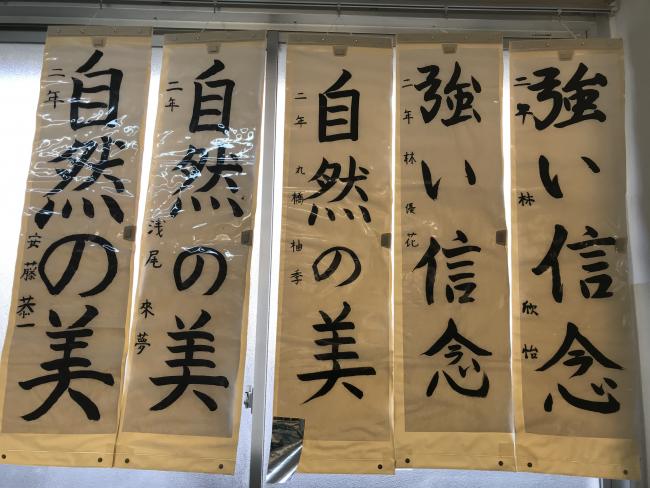 強い信念
二年 林 欣怡
強い信念
二年 林 優花
自然の美
二年 丸橋 柚季
自然の美
二年 浅尾 來夢
自然の美
二年 安藤 恭一